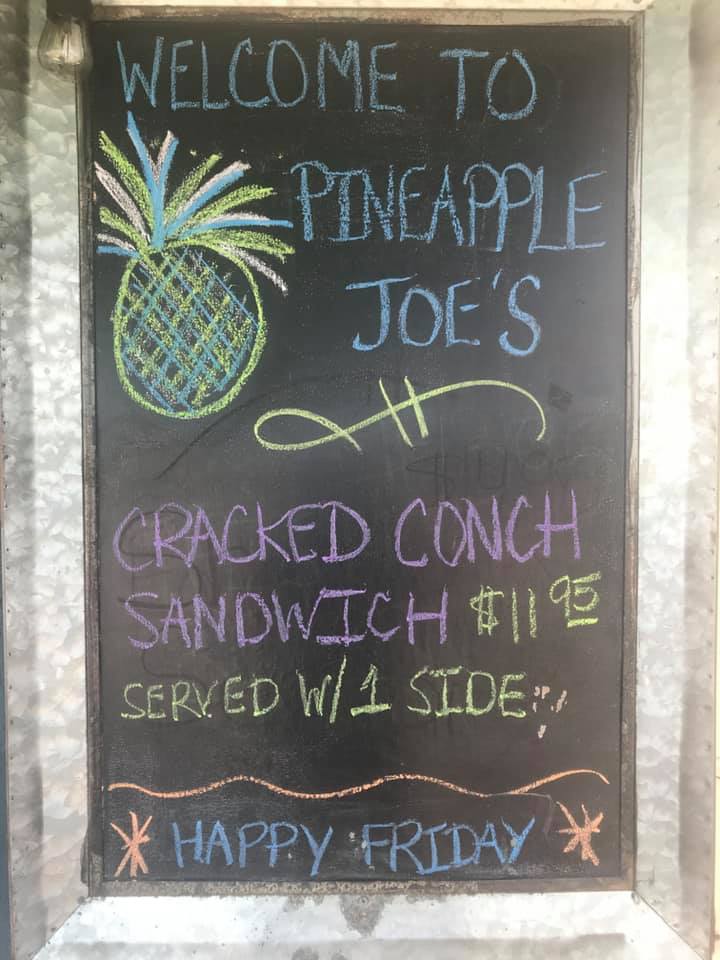 WELCOME TO
PINEAPPLE
JOE'S
CRACKED CONCH
SANDWICH $11 95
SERVED W/1 SIDE
HAPPY FRIDAY